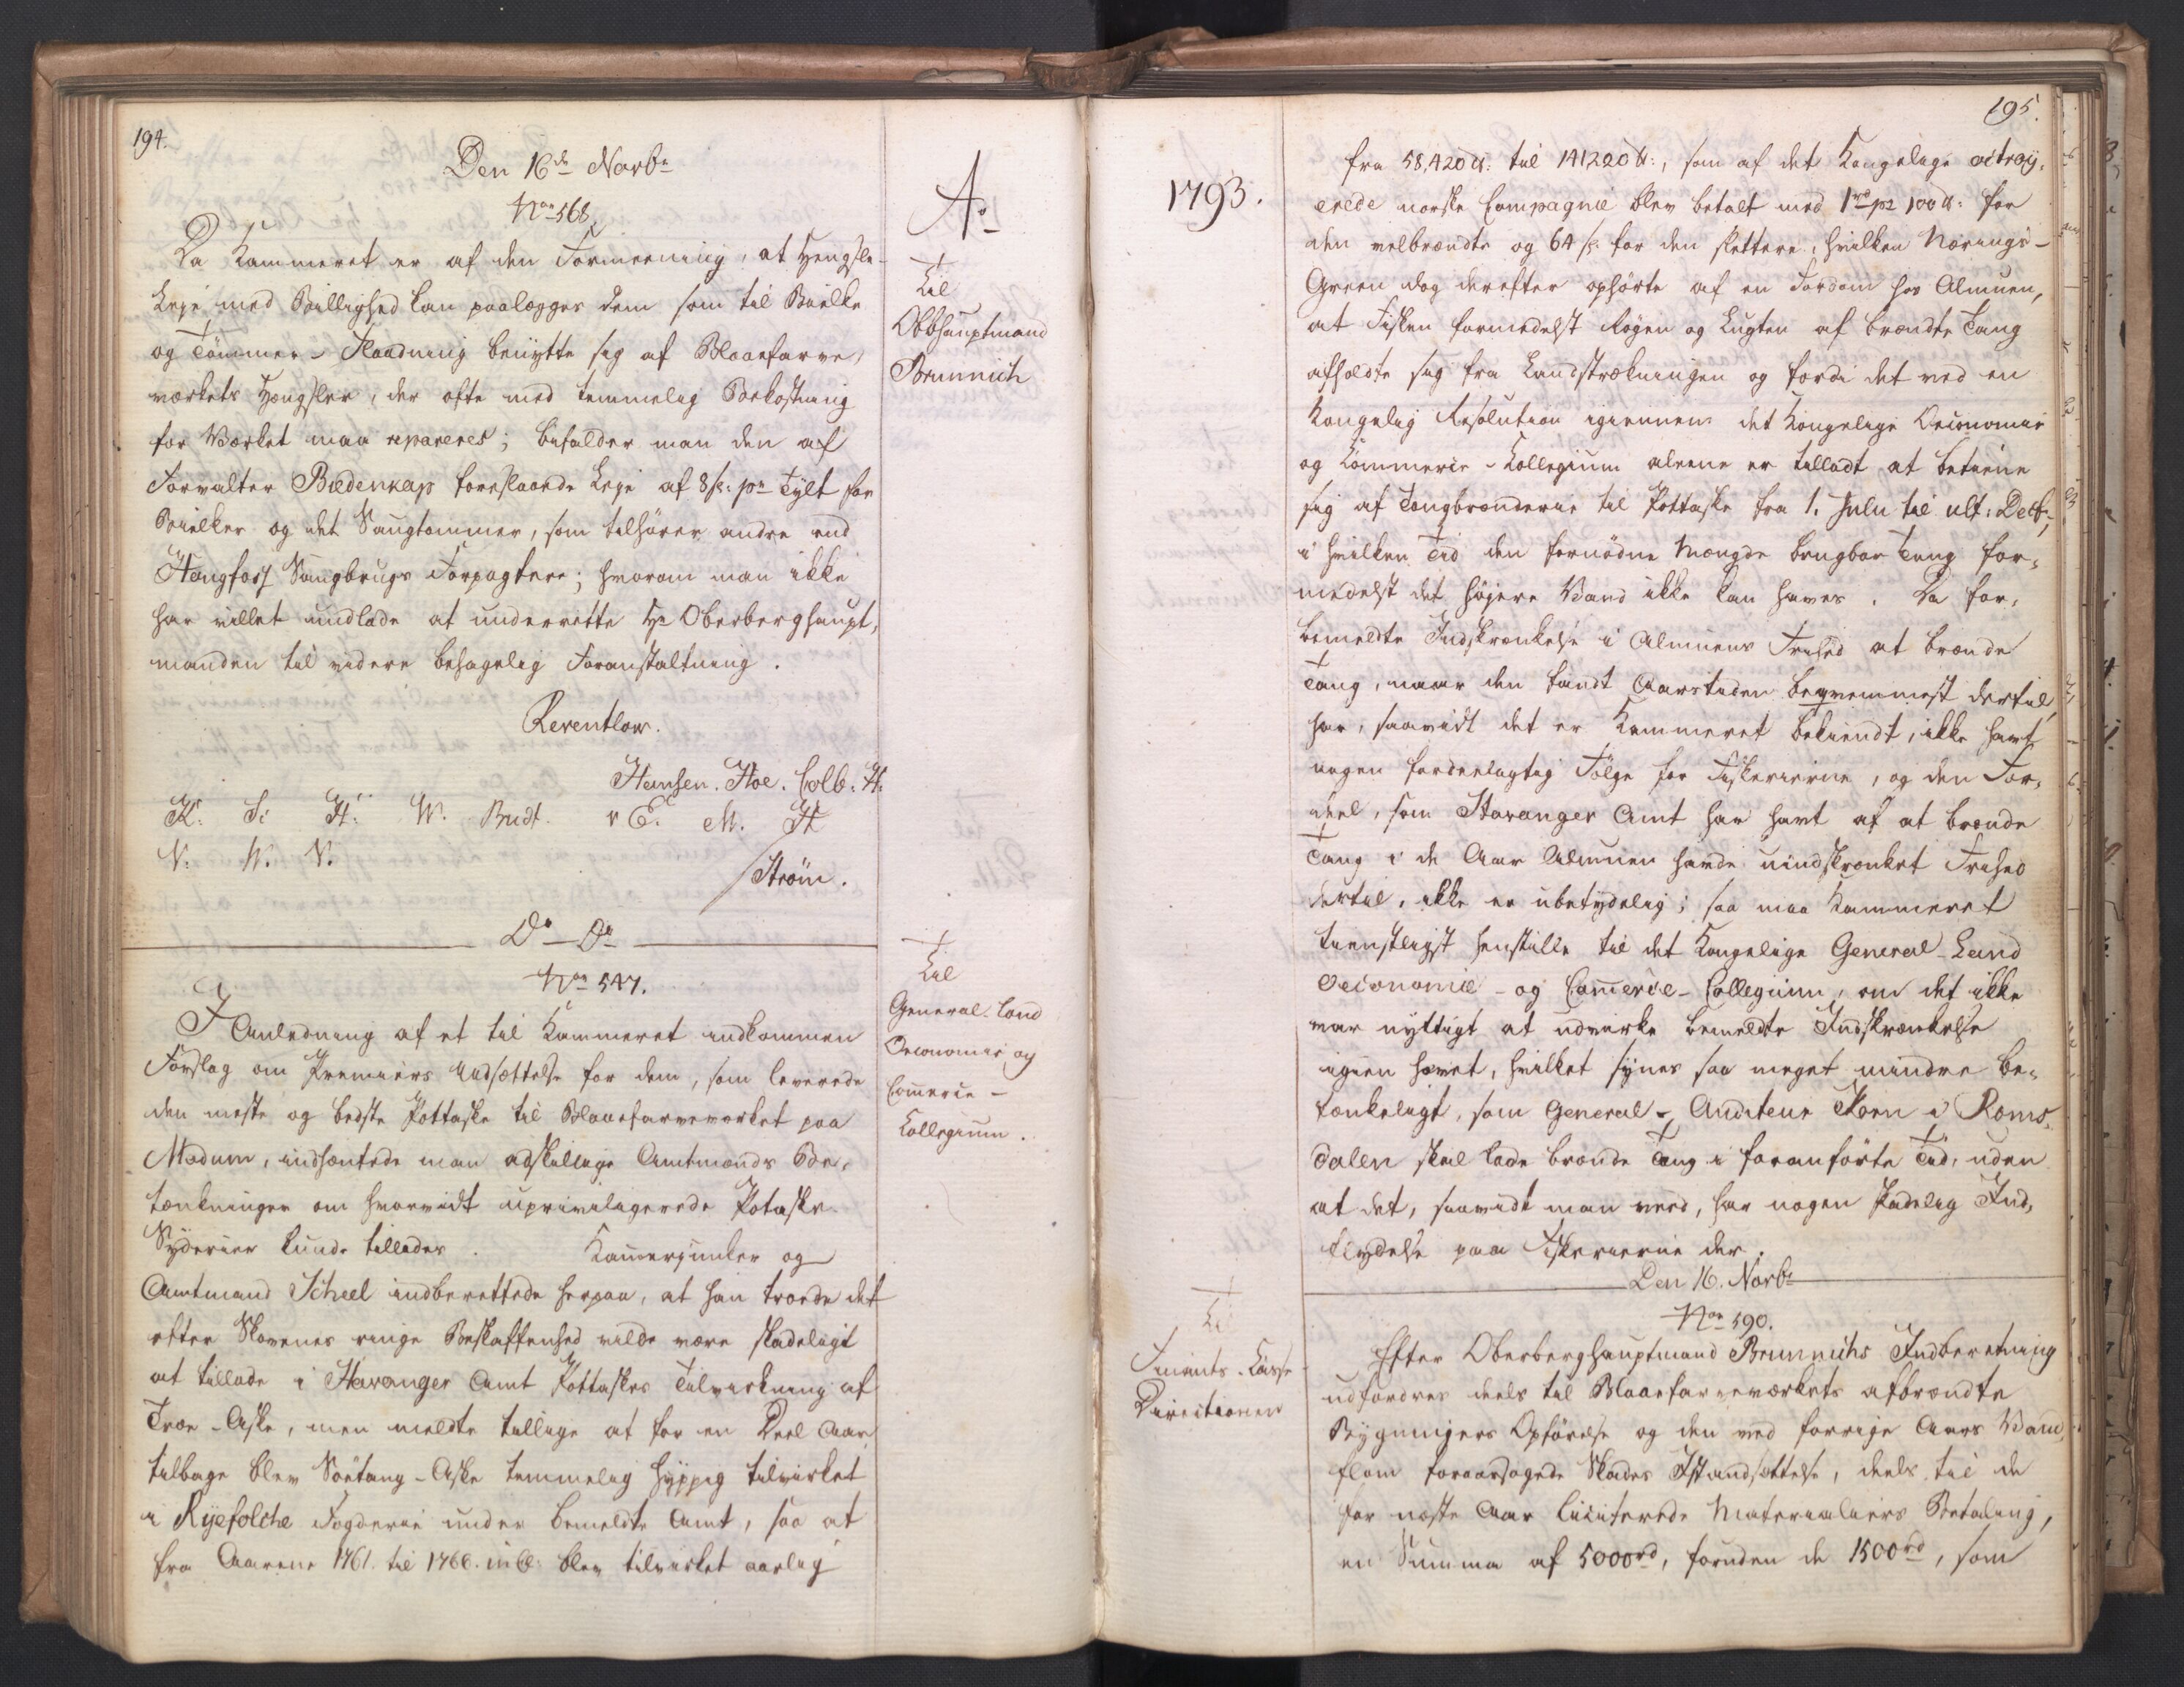 194.
Den 16de Novbr
Nor 568.
Da Kammeret er af den Formeening, at Hengsle-
Leje med Billighed kan paalægges dem som til Bielke
og Tömmer-Flaadning benytte sig af Blaafarve,
værkets Hængsler, der ofte med temmelig Bekostning
for Værket maa repareres; bifalder man den af
Forvalter Bædenkap foreslaaede Leje af 8 s: pr Tylt for
Bielker og det Saugtømmer, som tilhører andre end
Haugfoss Saugbrugs Forpagtere; hvorom man ikke
har villet undlade at underrette Hr Oberberghaupt,
manden til videre behagelig Foranstaltning.
Reventlow.
Hansen. Hoe. Colb: H:
K: S: H: W. Budt. v E. M. H
N: W. N.
/Ström.
Ao
Til
Obbhauptmand
Brunnich
Do Do
Nor 547.
I Anledning af et til Kammeret indkommen
Forslag om Premiers Udsættelse for dem, som leverede
den meste og bedste Pottaske til Blaafarveverket paa
Modum, indhentede man adskillige Amtmænds Be,
tænkninger om hvorvidt uprivilegerede Potaske
Syderier kunde tillades. Kammerjunker og
Amtmand Scheel indberettede herpaa, at han troede det
efter Skovenes ringe Beskaffenhed vilde være skadeligt
at tillade i Stavanger Amt Pottaskes Tilvirkning af
Træe-Aske, men meldte tillige at for en Deel Aar
tilbage blev Soetang-Aske temmelig hyppig tilvirket
i Ryefolche Fogderie under bemeldte Amt, saa at
fra Aarene 1761. til 1766. incl: blev tilvirket aarlig
Til
General-Land
Oeconomie og
Commerce-
Collegium.
195.
1793.
fra 58,420 tt: til 141220 tt:, som af det Kongelige octroy,
erede norske Compagnie blev betalt med 1 rd pr 100 tt: for
den velbrændte og 64 s: for den slettere, hvilken Nærings-
Green dog derefter ophørte af en Fordom hos Almuen,
at Fisken formedelst Røgen og Lugten af brændte Tang
afholdte sig fra Landstrækningen og fordi det ved en
Kongelig Resolution igiennem det Kongelige Oeconomie
og Commerce-Collegium aleene er tilladt at betiene
sig af Tangbrænderie til Pottaske fra 1. Julii til ult: Decbr,
i hvilken Tid den fornødne Mængde brugbar Tang for,
medelst det højere Vand ikke kan haves. Da for,
bemeldte Indskrænkelse i Almuens Frihed at brænde
Tang, naar den fandt Aarstiden beqvemmest dertil,
har, saavidt det er Kammeret bekiendt, ikke havt
nogen fordeelagtig Følge for Fiskerierne, og den For,
deel, som Stavanger Amt har havt af at brænde
Tang i de Aar Almuen havde uindskrænket Frihed
dertil, ikke er ubetydelig; saa maa Kammeret
tienstligst henstille til det Kongelige General-Land
Oeconomie- og Commerce-Collegium, om det ikke
var nyttigt at udvirke bemeldte Indskrænkelse
igien hævet, hvilket synes saa meget mindre be,
tænkeligt, som General-Auditeur Koren i Roms,
dalen skal lade brænde Tang i foranførte Tid, uden
at det, saavidt man veed, har nogen skadelig Ind,
flydelse paa Fiskerierne der.
Den 16. Novbr
Nor 590.
Til
Finants-Casse-
Directionen
Efter Oberberghauptmand Brunnichs Indberetning
udfordres deels til Blaafarveværkets afbrændte
Bygningers Opførelse og den ved forrige Aars Vand,
flom foraarsagede Skades Istandsættelse, deels til de
for næste Aar liciterede Materialiers Betaling,
en Summa af 5000 rd, foruden de 1500 rd, som